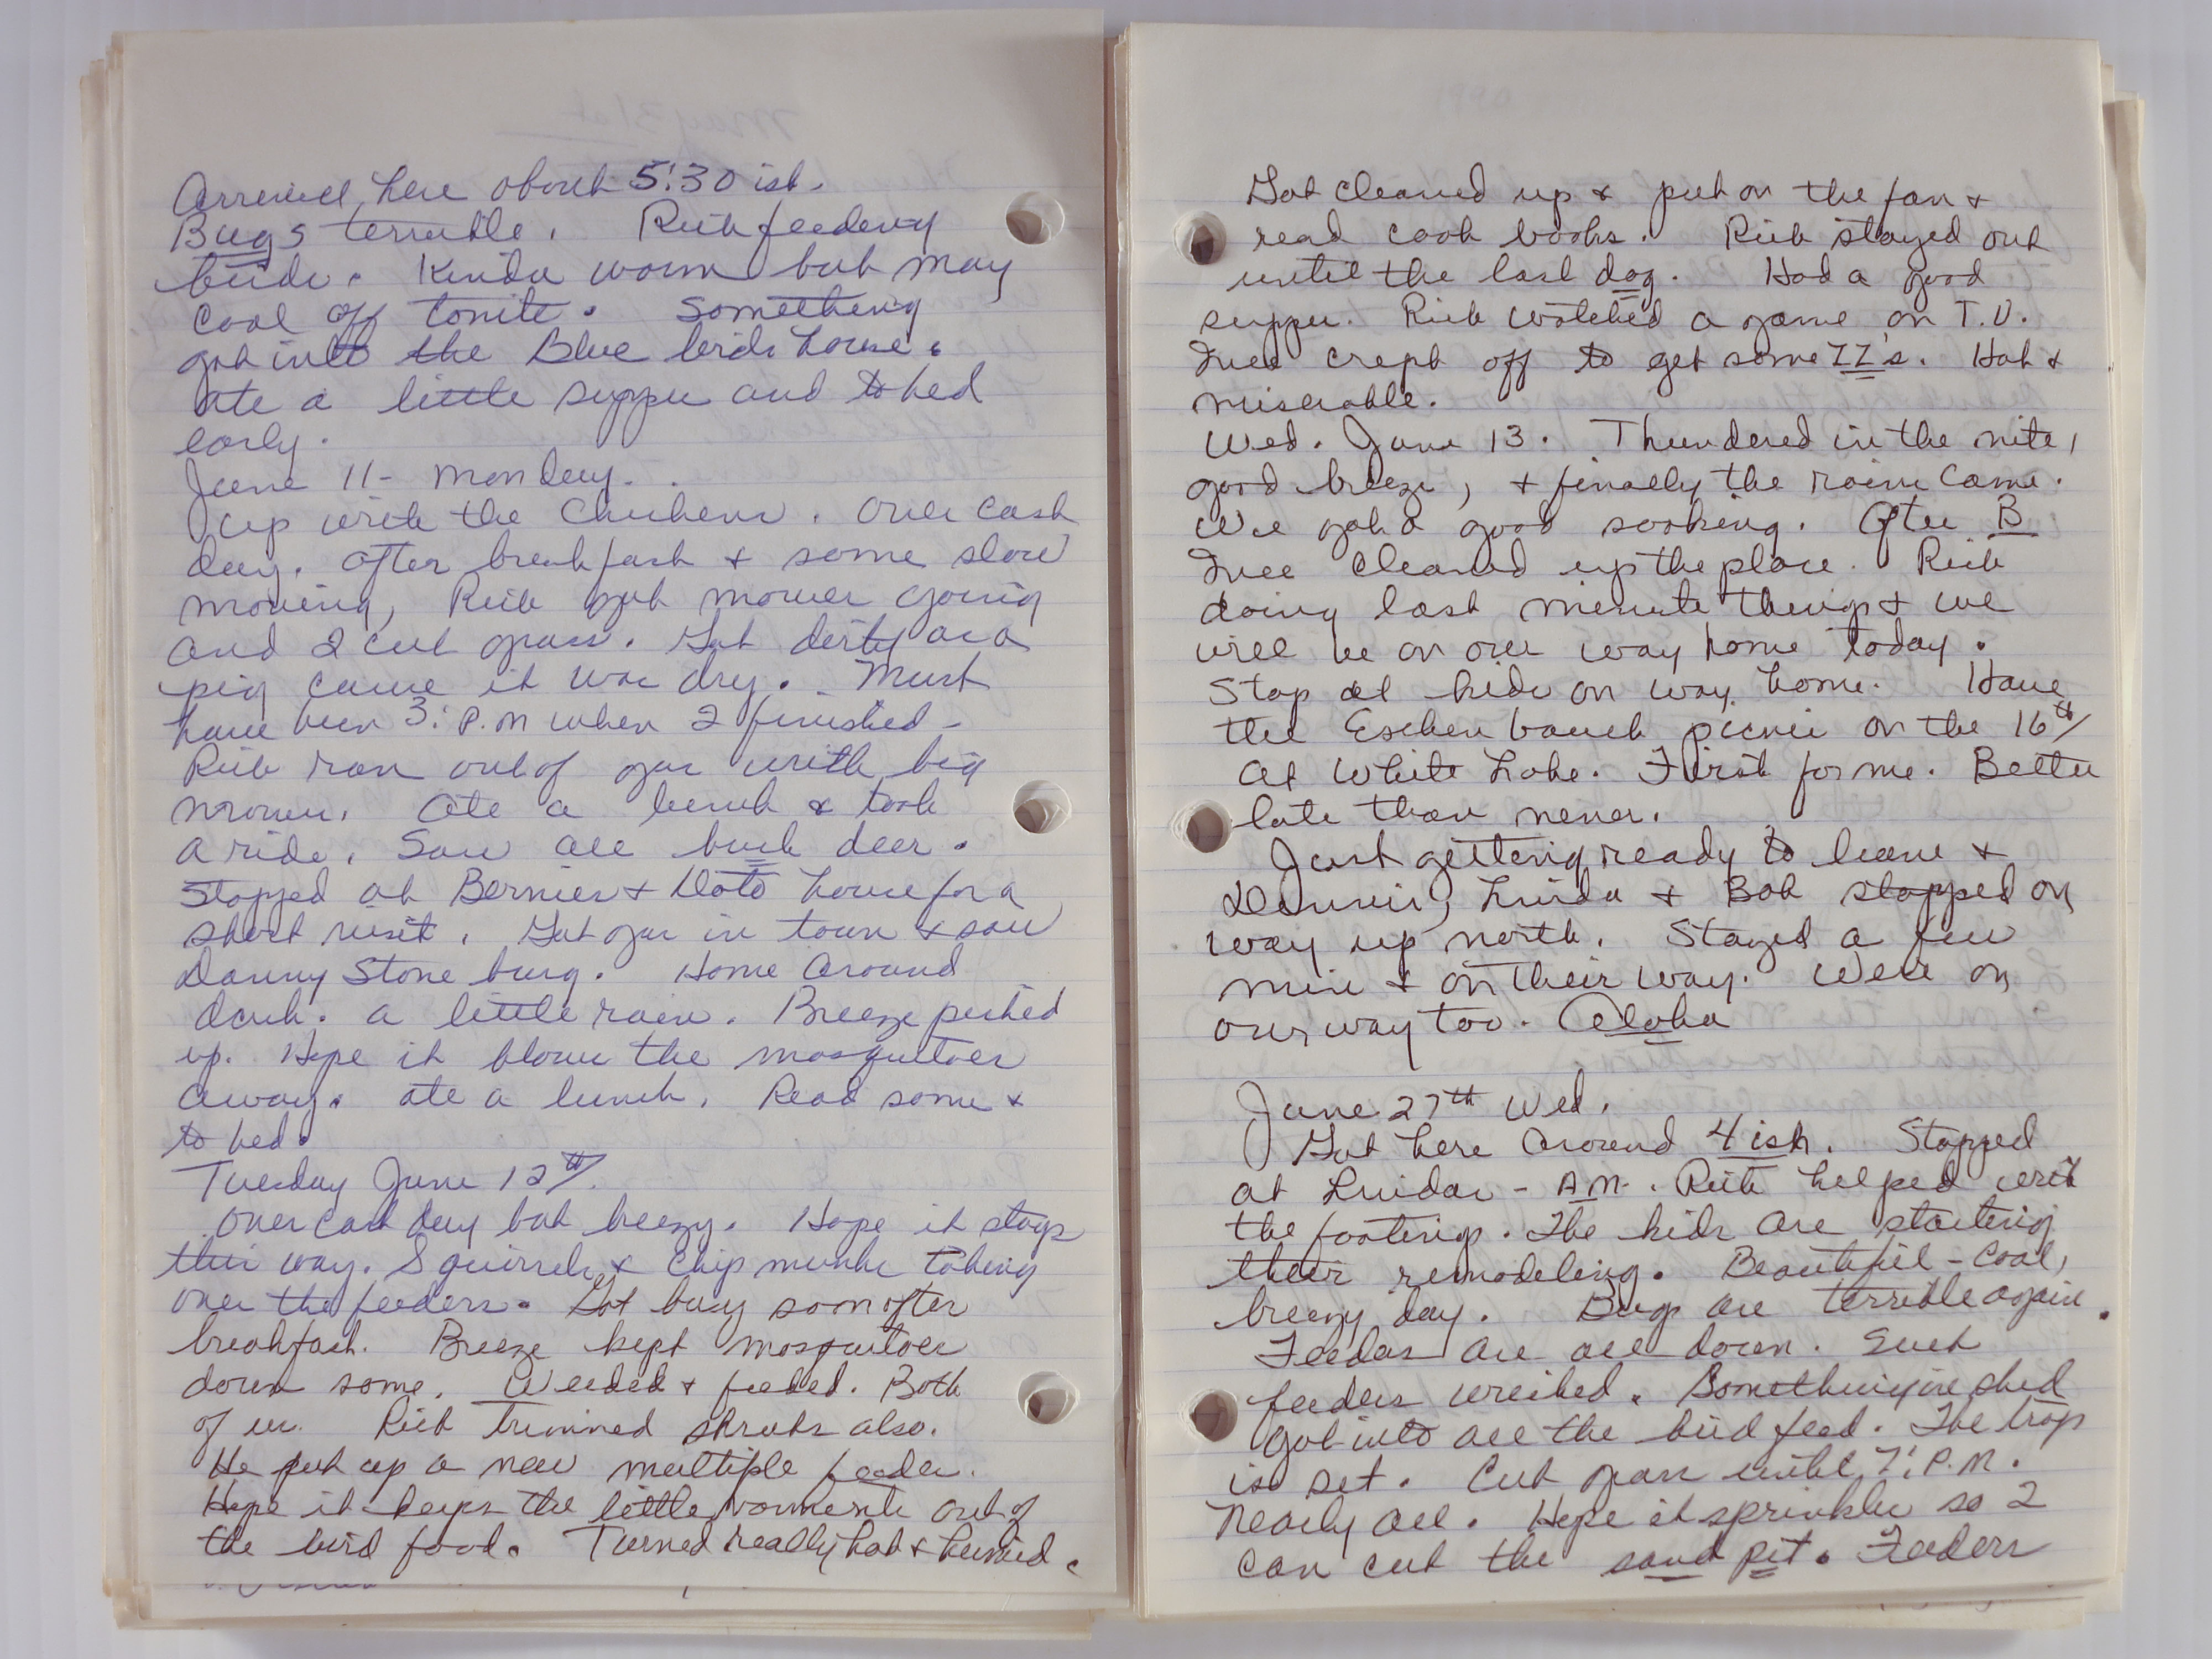 Arrived here about 5:30 ish.
Bugs terrible. Rich feedeng
birds. Kinda warm but may
cool off tonite. Something
got into the Blue birds house.
ate a little supper and to bed
early.
June 11 - Monday.
Up with the Chickens. Over cast
day. After breakfast & some slow
moving, Rich got mower going
and I cut grass. Got dirty as a
pig cause it was dry. Must
have been 3: P.M when I finished -
Rich ran out of gas with big
mower. Ate a lunch & took
a ride. Saw all buck deer.
Stopped at Bernies & Dots house for a
short visit. Got gas in town & saw
Danny Stone burg. Home around
dark. a little rain. Breeze picked
up. Hope it blows the mosquitoes
away. ate a lunch. Read some &
to bed.
Tuesday June 12th.
Over cast day but breezy. Hope it stays
this way. Squirrels & Chip munks taking
over the feeders. Got busy soon after
breakfast. Breeze kept mosquitoes
down some. Weeded & feeded. Both
of us. Rich trimmed shrubs also.
He put up a new multiple feeder.
Hope it keeps the little varments out of
the bird food. Turned really hot & humid.
Got cleaned up & put on the fan &
read cook books. Rich stayed out
until the last dog. Had a good
supper. Rich watched a game on T.V.
Inez crept off to get some ZZ's. Hot &
miserable.
Wed. June 13. Thundered in the nite,
good breeze, & finally the rain came.
We got a good soaking. After B
Inez cleaned up the place. Rich
doing last minute things & we
will be on our way home today.
Stop at kids on way home. Have
the Eschen bauch picnic on the 16th
at White Lake. First for me. Better
late than never.
Just getting ready to leave &
Dennis, Linda & Bob stopped on
way up north. Stayed a few
min & on their way. Were on
our way too. Aloha
June 27th Wed.
Got here around 4 ish. Stopped
at Lindas - A.M. Rich helped with
the footings. The kids are starting
their remodeling. Beautiful - cool,
breezy day. Bugs are terrible again.
Feeders are all down. Suet
feeders wrecked. Something in shed
got into all the bird feed. The trap
is set. Cut grass until 7: P.M.
Nearly all. Hope it sprinkles so I
can cut the sand pit. Feeders